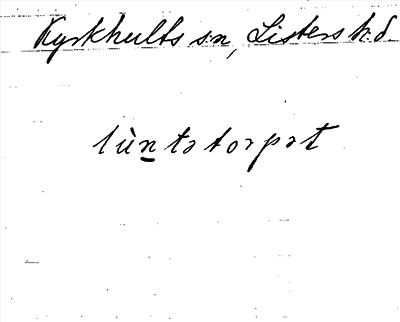 Kyrkhults s.n, Listers h.d.
lùn̲tətorpət